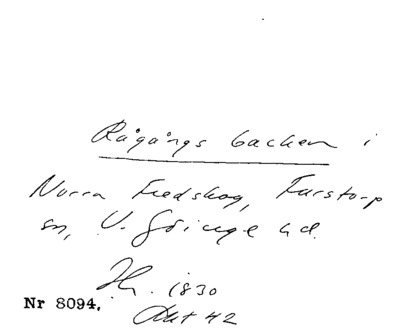 Rågångs backen i
Norra Fredskog, Farstorp
sn, V. Göinge hd.
1830
Nr 8094.
42